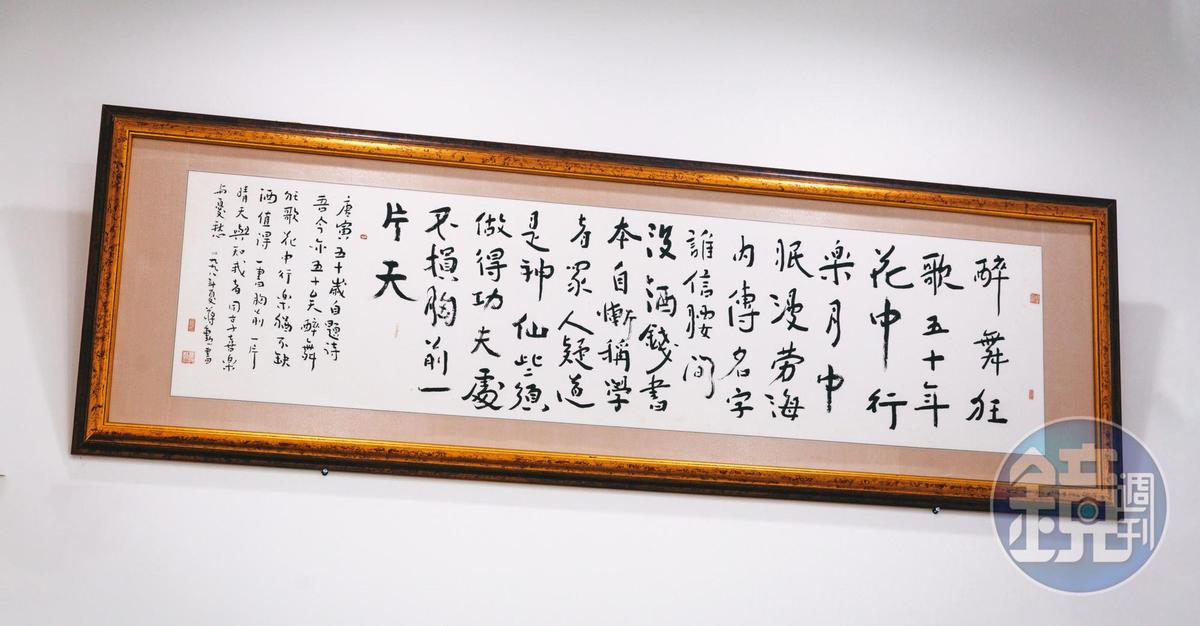 醉舞狂
歌五十年
花中行
楽月中
眠漫劳海
内傳名字
誰信腰间
没酒錢書
本自慚稱學
者眾人疑道
是神仙些須
做得功夫處
不損胸前一
片天
庚寅五十歲自題诗
吾今亦五十矣醉舞
狂歌花中行楽猶不缺
酒值得一書胸前一片
晴天與知我者同喜樂
与憂愁 一九九六年夏蔣勳書
鏡週刊